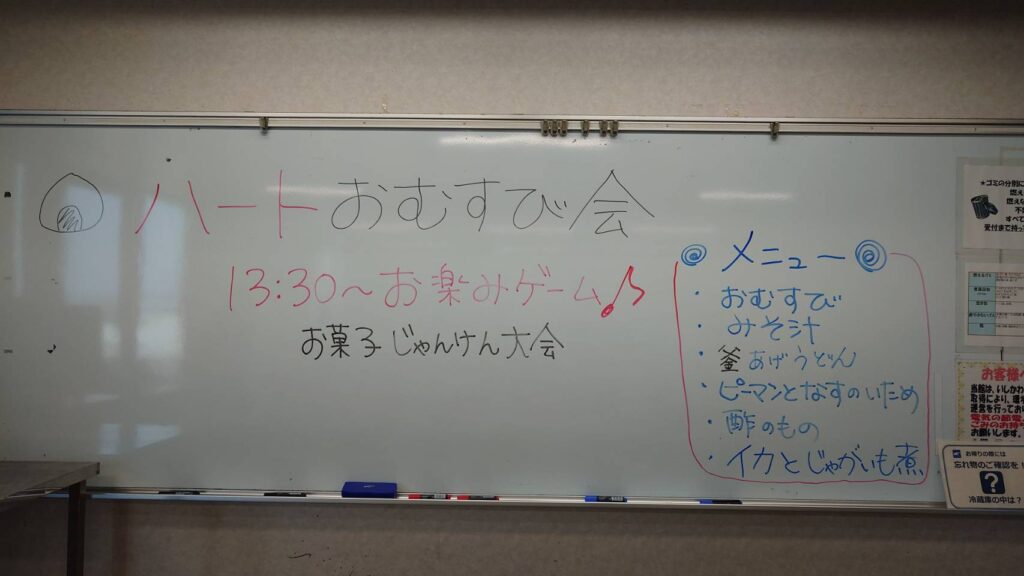 ハートおむすび会
13:30～お楽みゲーム♪
お菓子じゃんけん大会
メニュー
・おむすび
・みそ汁
・釜あげうどん
・ピーマンとなすのいため
・酢のもの
・イカとじゃがいも煮
★ゴミの分別に
燃え
燃えな
不
すべて
受付まで持っ
お客様へ
当館は、いしかわ
取得により、環
運営を行ってお
電気の節電
ごみのお持ち
お願いします。
お帰りの際には
忘れ物のご確認を
?
冷蔵庫の中は?